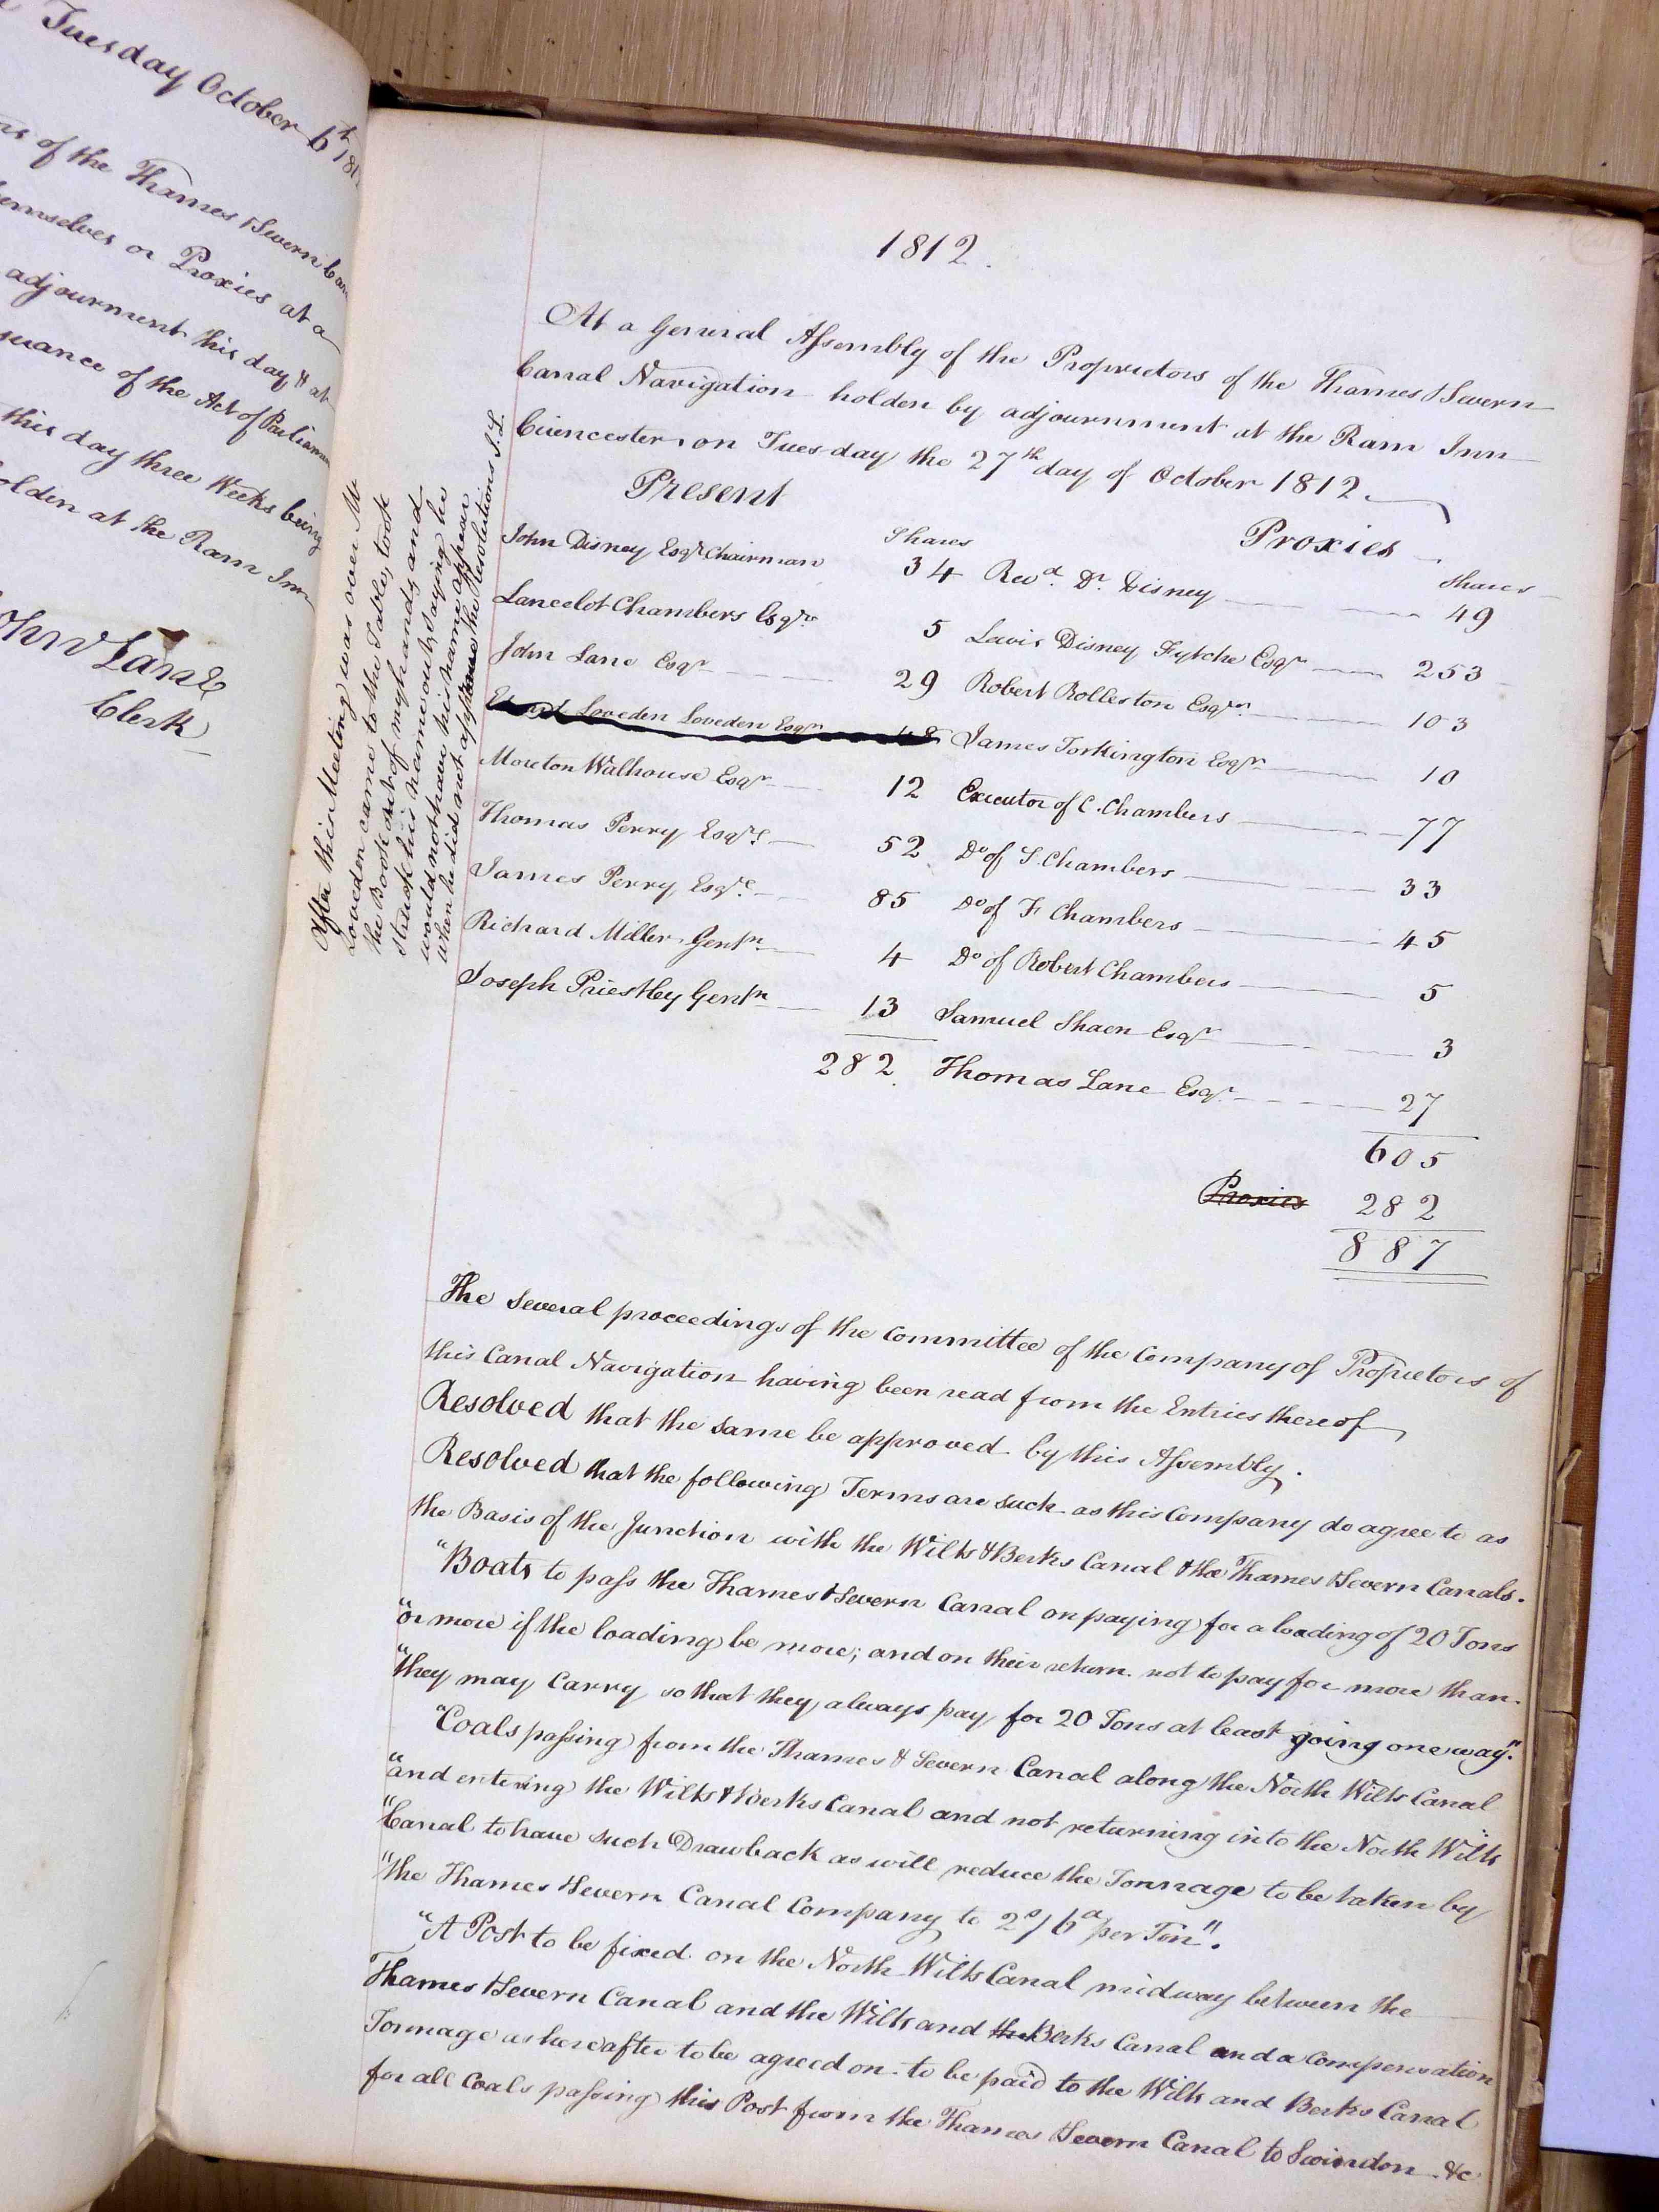 Tuesday October 6th 181
of the Thames & Severn Can
emselves or Proxies at a
adjournment this day & at
suance of the Act of Parliam
this day three Weeks being
olden at the Ram Inn
John Lane
Clerk
After this Meeting was over Mr
Loveden came to the Table, took
the Book out of my hands, and
struck his name out, saying he
would not have his name appear
when he did not approve the Resolutions J.L.
1812.
At a General Assembly of the Proprietors of the Thames & Severn
Canal Navigation holden by adjournment at the Ram Inn
Cirencester, on Tuesday, the 27th day of October 1812.
Present Proxies
Shares Shares
John Disney Esqr Chairman 34 Revd. Dr. Disney 49
Lancelot Chambers Esqre 5 Lewis Disney Fytche Esqr 253
John Lane Esqr 29 Robert Rolleston Esqre 103
Loveden Loveden Esqr 48 James Torkington Esqr 10
Moreton Walhouse Esqr 12 Executor of C. Chambers 77
Thomas Perry Esqre 52 Do of S. Chambers 33
James Perry Esqre 85 Do of F Chambers 45
Richard Miller Gentn 4 Do of Robert Chambers 5
Joseph Priestley Gentn 13 Samuel Shaen Esqr 3
282. Thomas Lane Esqr. 27
605
Proxies 282
887
The several proceedings of the Committee of the Company of Proprietors of
this Canal Navigation having been read from the Entries thereof
Resolved that the same be approved by this Assembly.
Resolved that the following Terms are such as this Company do agree to as
the Basis of the Junction with the Wilts & Berks Canal & the Thames & Severn Canals.
"Boats to pass the Thames & Severn Canal on paying for a loading of 20 Tons
"or more if the loading be more; and on their return not to pay for more than
"they may carry so that they always pay for 20 Tons at least going one way."
"Coals passing from the Thames & Severn Canal along the North Wilts Canal
"and entering the Wilts & Berks Canal and not returning into the North Wilts
"Canal to have such Drawback as will reduce the Tonnage to be taken by
"the Thames & Severn Canal Company to 2s/6d per Ton".
"A Post to be fixed on the North Wilts Canal midway between the
Thames & Severn Canal and the Wilts and the Berks Canal and a Compensation
Tonnage as hereafter to be agreed on to be paid to the Wilts and Berks Canal
for all Coals passing this Post from the Thames & Severn Canal to Swindon &c